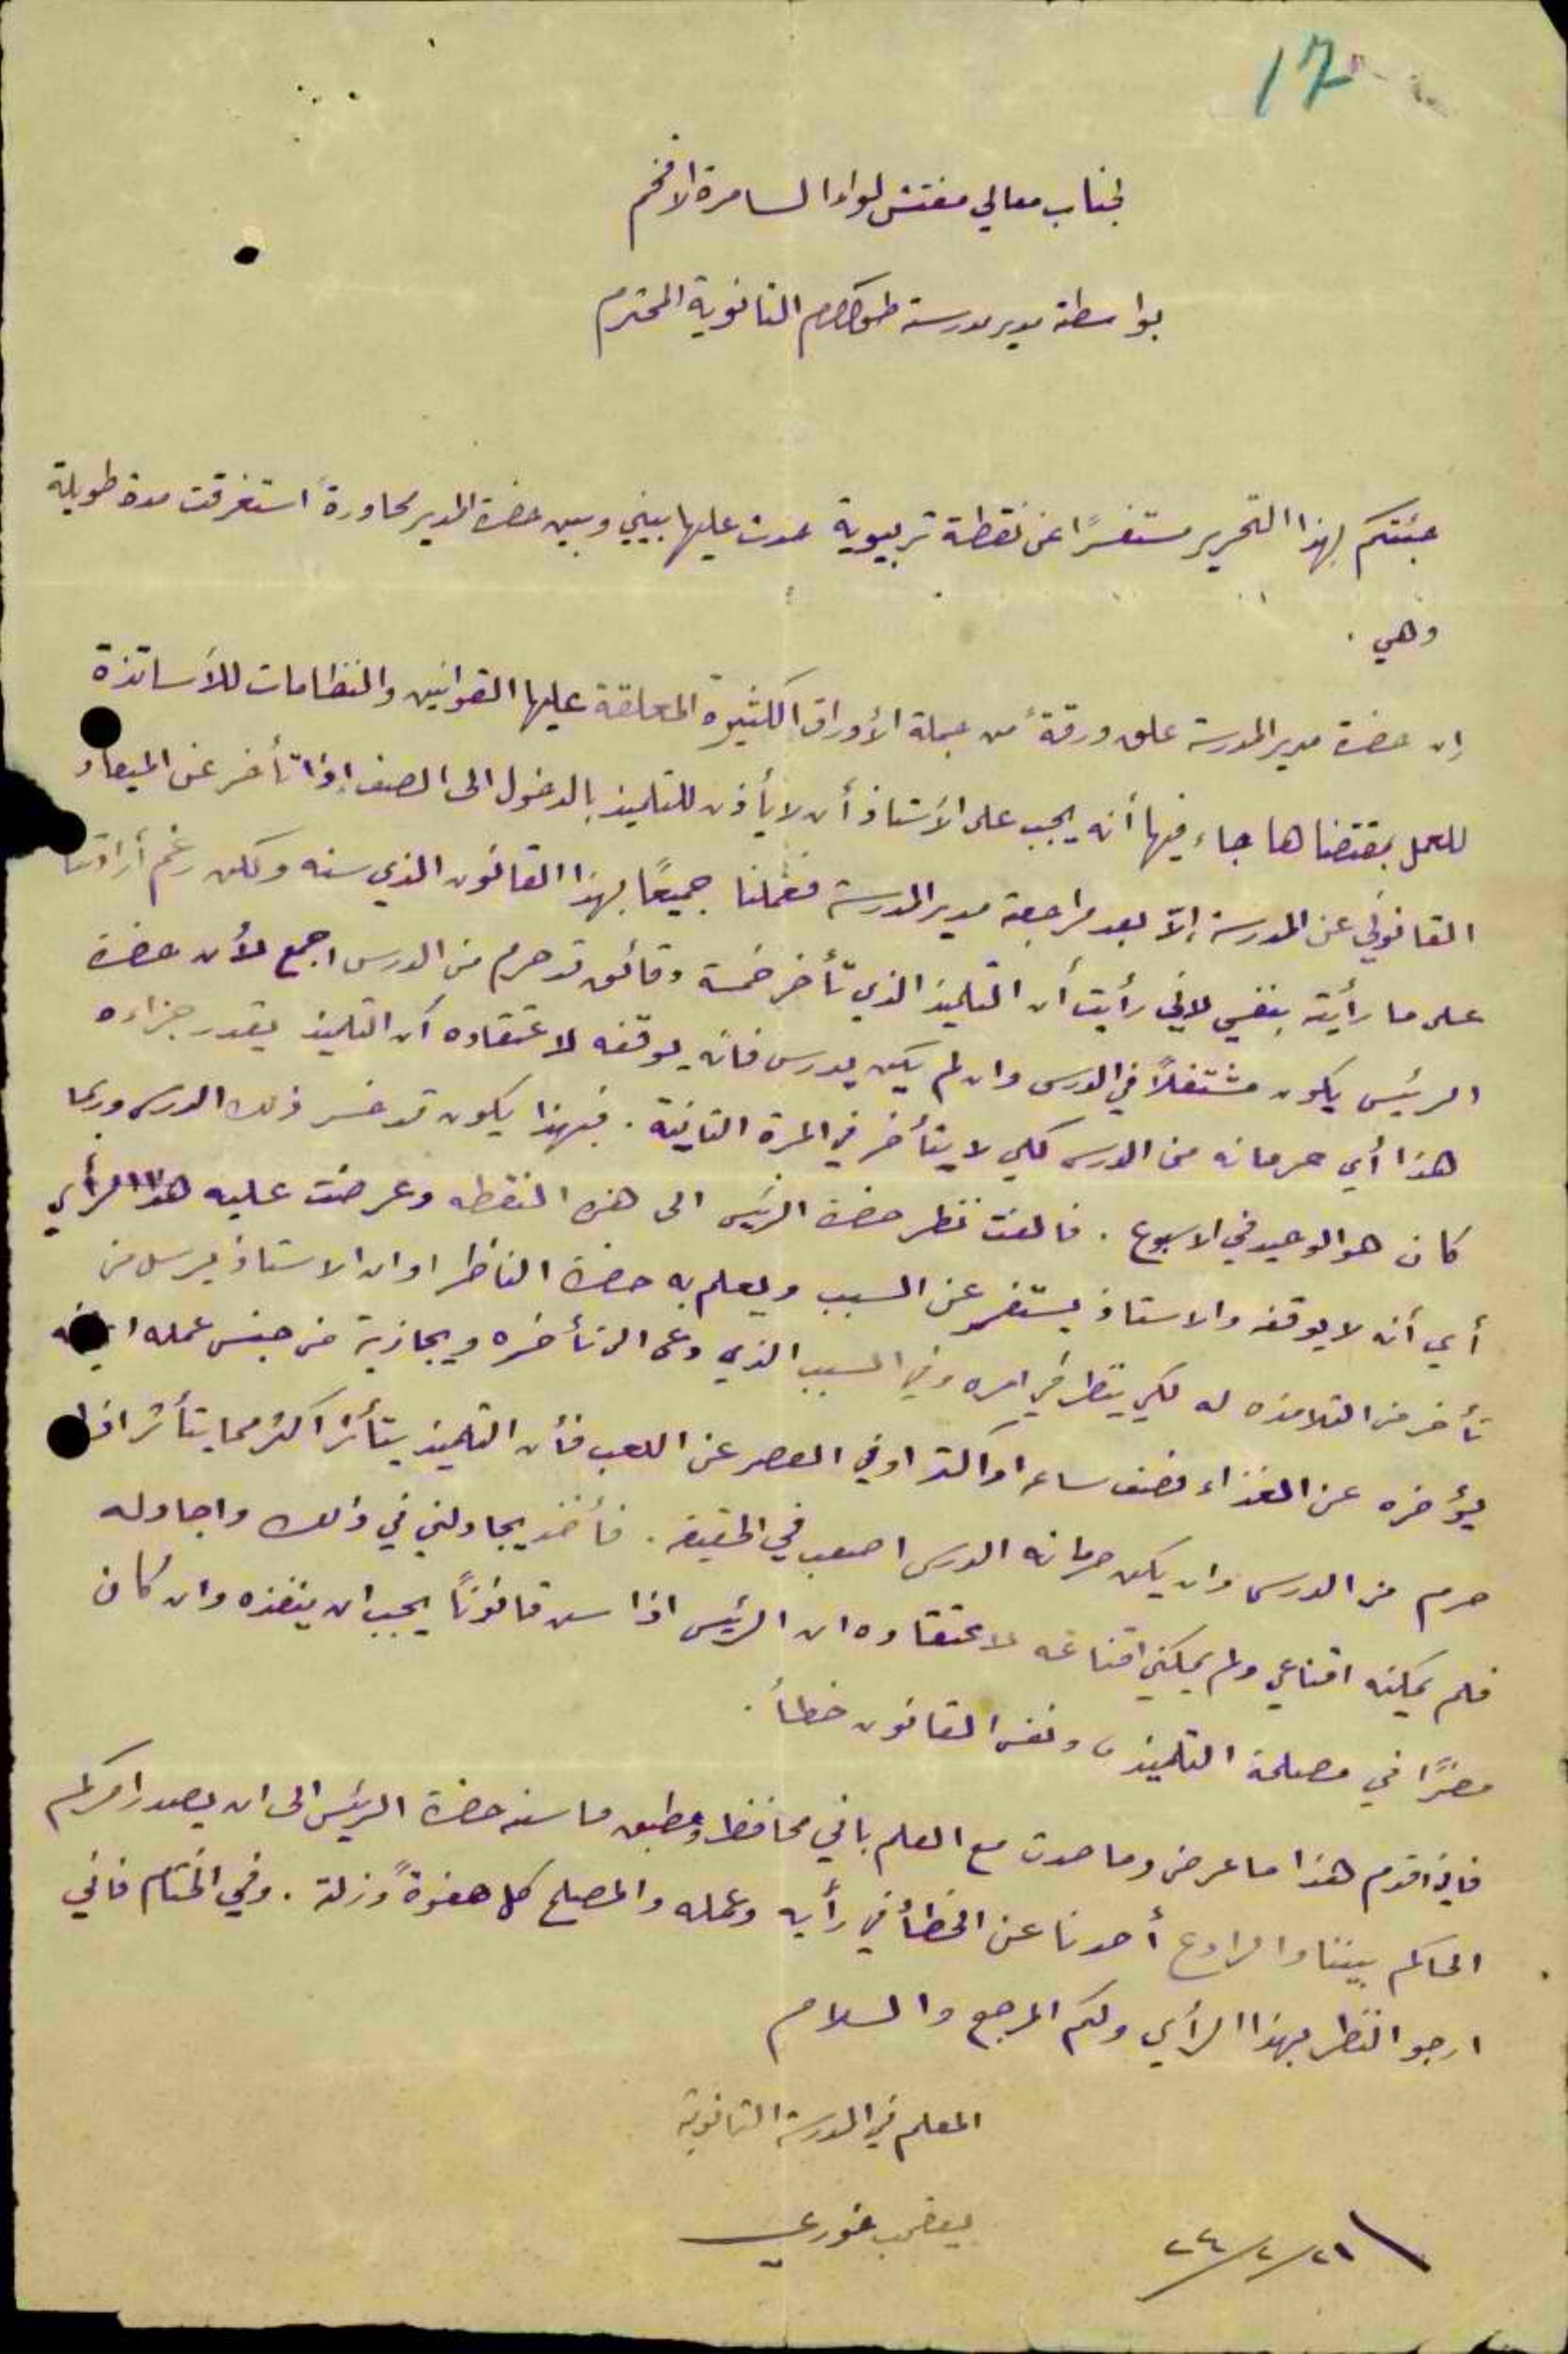 17
لجناب معالي مفتش لواء السامرة الافخم
بواسطة مدير مدرسة طولكرم الثانوية المحترم
جئتكم بهذا التحرير مستفسرًا عن نقطة تربيوية حدث عليها بيني وبين حضرة المدير محاورةً استغرقت مدة طويلة
وهي .
إن حضرة مدير المدرسة علق ورقةً من جملة الأوراق الكثيرة المعلقة عليها القوانين والنظامات للأساتذة
للعمل بمقتضاها جاء فيها أنه يجب على الأستاذ أن لا يأذن للتلميذ بالدخول الى الصف إذا تأخر عن الميعاد
القانوني عن المدرسة إلّا بعد مراجعة مدير المدرسة فعملنا جميعًا بهذا القانون الذي سنه ولكن رغم
على ما رأيته بنفسي لاني رأيت أن التلميذ الذي تأخر خمسة دقائق قد حرم من الدرس اجمع لأن حضرة
الرئيس يكون مشتغلاً في الدرس وان لم يكن يدرس فانه يوقفه لاعتقاده أن التلميذ يقدر جزاءه
هذا أي حرمانه من الدرس لكي لا يتأخر في المرة الثانية . فبهذا يكون قد خسر ذلك الدرس وربما
كان هو الوحيد في الاسبوع . فالفت نظر حضرة الرئيس الى هذه النقطه وعرضت عليه هذا الرأي
أي أنه لا يوقفه والاستاذ يستفسر عن السبب ويعلم به حضرة الناظر او ان الاستاذ يرسل من
تأخر من التلامذه له لكي ينظر في امره وفي السبب الذي دعى الى تأخره ويجازيه من جنس عمله
يؤخره عن الغذاء نصف ساعه او اكثر او في العصر عن اللعب فأن التلميذ يتأثر اكثر مما يتأثر اذا
حرم من الدرس وان يكن حرمانه الدرس اصعب في الحقيقه . فأخذ يجادلني في ذلك واجادله
فلم يمكنه اقناعي ولم يمكني اقناعه لاعتقاده ان الرئيس اذا سن قانونًا يجب ان ينفذه وان كان
مضرًا في مصلحة التلميذ ونفس القانون خطأ .
فاني اقدم هذا ما عرض وما حدث مع العلم باني محافظ ومطبق ما سنه حضرة الرئيس الى ان يصدر امركم
الحاكم بيننا والرادع أحدنا عن الخطأ في رأيه وعمله والمصلح كل هفوةً وزلة . وفي الختام فاني
ارجو النظر بهذا الرأي ولكم المرجع والسلام
المعلم في المدرسة الثانوية
يعقوب خوري
٢١/٢/٢٤